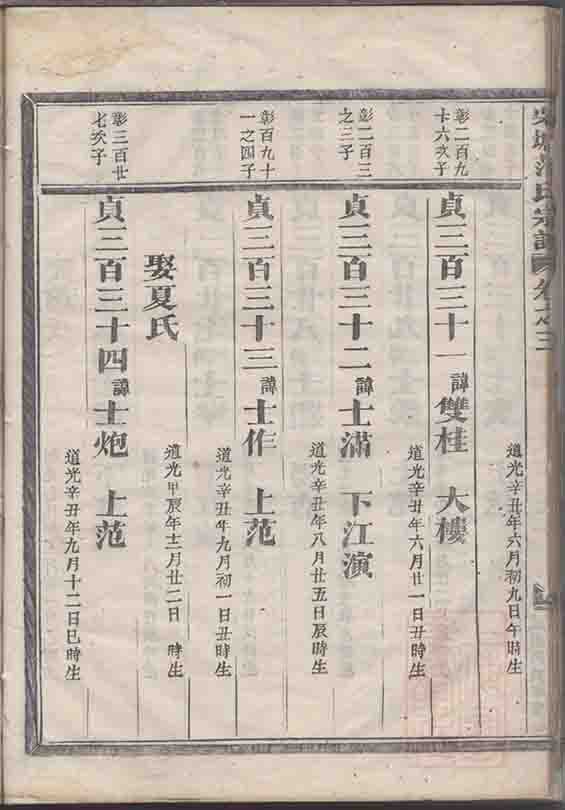 范氏宗譜 卷之三
道光辛丑年六月初九日午時生
彰二百九
十六次子
貞三百三十一 諱雙桂 大樓
道光辛丑年六月廿一日丑時生
彰二百三
之三子
貞三百三十二 諱士滿 下江演
道光辛丑年八月廿五日辰時生
彰百九十
一之四子
貞三百三十三 諱士作 上范
道光辛丑年九月初一日丑時生
娶夏氏
道光甲辰年十二月廿二日 時生
彰三百廿
七次子
貞三百三十四 諱士炮 上范
道光辛丑年九月十二日巳時生